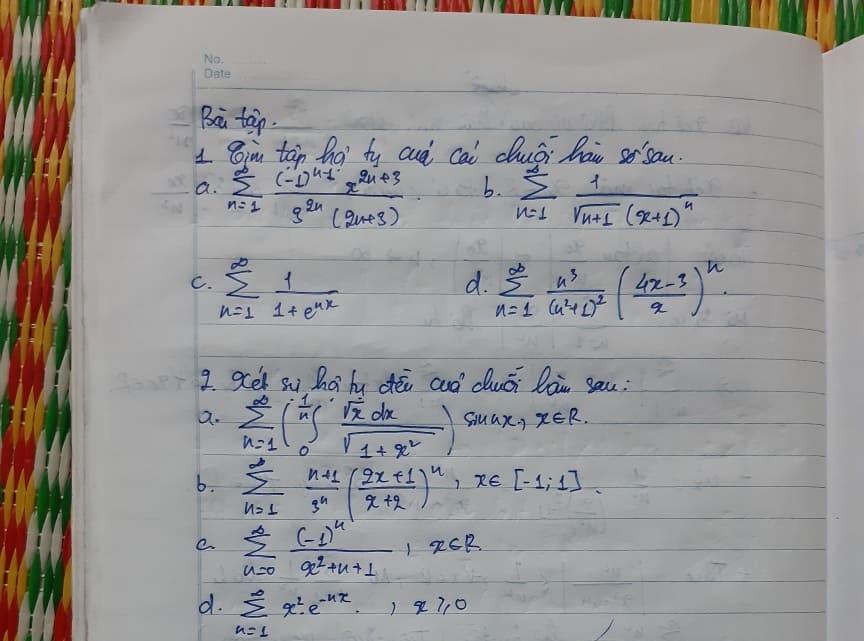 No.
Date
Bài tập.
1. Tìm tập hội tụ của các chuỗi hàm số sau.
a. $\sum_{n=1}^{\infty} \frac{(-1)^{n-1} x^{2n+3}}{3^{2n}(2n+3)}$. b. $\sum_{n=1}^{\infty} \frac{1}{\sqrt{n+1}(x+1)^n}$
c. $\sum_{n=1}^{\infty} \frac{1}{1+e^{nx}}$ d. $\sum_{n=1}^{\infty} \frac{n^3}{(n^2+1)^2} \left(\frac{4x-3}{x}\right)^n$.
2. Xét sự hội tụ đều của chuỗi hàm sau:
a. $\sum_{n=1}^{\infty} \left(\int_0^{\frac{1}{n}} \frac{\sqrt{x}dx}{\sqrt{1+x^2}}\right) \sin nx$, x∈R.
b. $\sum_{n=1}^{\infty} \frac{n+1}{3^n} \left(\frac{2x+1}{x+2}\right)^n$, x∈ [-1;1].
c. $\sum_{n=0}^{\infty} \frac{(-1)^n}{x^2+n+1}$, x∈R
d. $\sum_{n=1}^{\infty} x^2.e^{-nx}$. , x⩾0